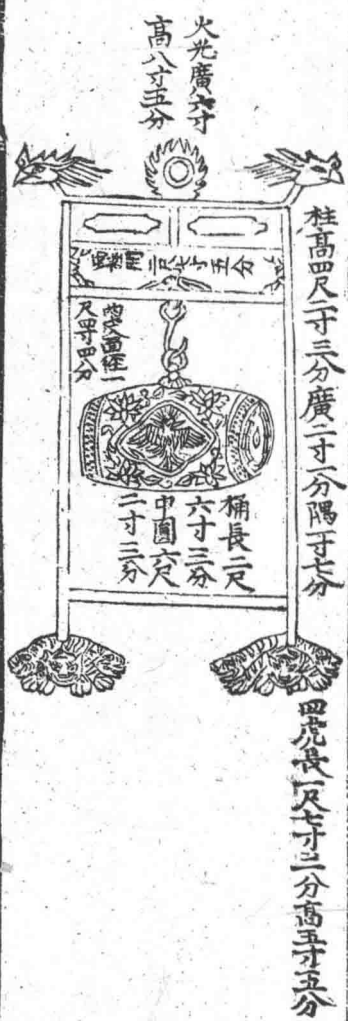 火光廣六寸
高八寸五分
柱高四尺二寸三分廣二寸一分隅一寸七分
尺七寸五分
面徑一
尺四寸四分
桶長二尺
六寸三分
中圍六尺
二寸二分
四虎長一尺七寸二分高五寸五分